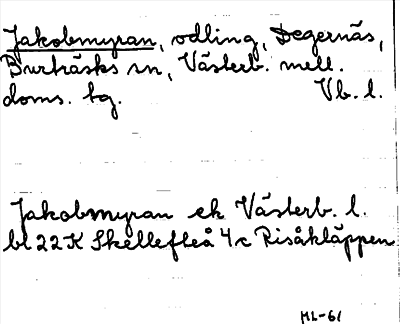 Jakobmyran, odling, Degernäs,
Burträsks sn, Västerb. mell.
doms. tg. Vb. l.
Jakobmyran ek Västerb. l.
bl 22K Skellefteå 4c Risåkläppen
ML-61